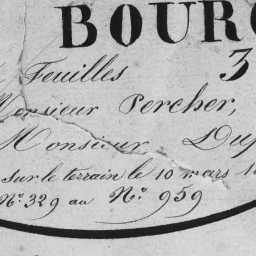 BOURG
3
Feuilles
Monsieur Percher,
Monsieur Dup
sur le terrain le 10 mars 1
Nº 329 au Nº 959